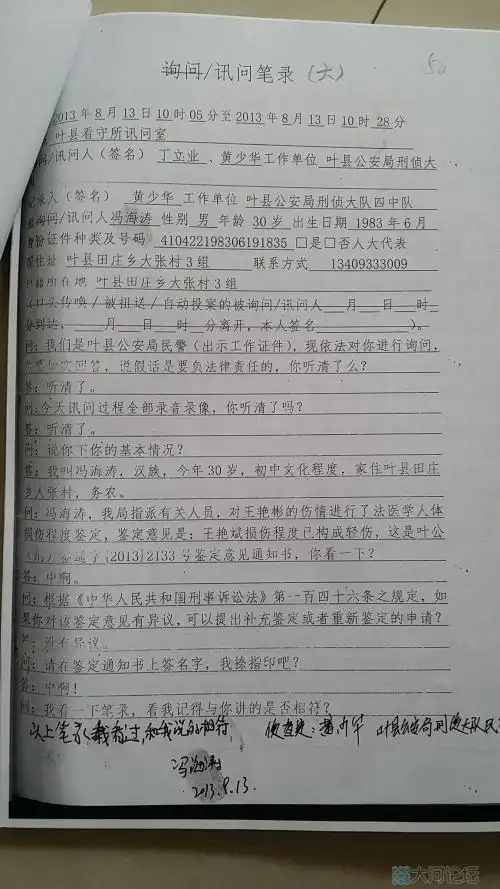 询问/讯问笔录(六)
50
2013年8月13日10时05分至2013年8月13日10时28分
叶县看守所讯问室
问/讯问人(签名) 丁立业、黄少华工作单位 叶县公安局刑侦大
记录人(签名) 黄少华 工作单位 叶县公安局刑侦大队四中队
被询问/讯问人冯海涛 性别 男 年龄 30岁 出生日期 1983年6月
身份证件种类及号码 410422198306191835 □是□否人大代表
现住址 叶县田庄乡大张村3组 联系方式 13409333009
户籍所在地 叶县田庄乡大张村3组
(口头传唤/被扭送/自动投案的被询问/讯问人 月 日 时
分到达, 月 日 时 分离开,本人签名 )。
问:我们是叶县公安局民警(出示工作证件),现依法对你进行询问,
实回答,说假话是要负法律责任的,你听清了么?
答:听清了。
问:今天讯问过程全部录音录像,你听清了吗?
答:听清了。
问:说你下你的基本情况?
答:我叫冯海涛,汉族,今年30岁,初中文化程度,家住叶县田庄
乡大张村,务农。
问:冯海涛,我局指派有关人员,对王艳彬的伤情进行了法医学人体
损伤程度鉴定,鉴定意见是:王艳斌损伤程度已构成轻伤,这是叶公
鉴通字[2013]2133号鉴定意见通知书,你看一下?
答:中啊。
问:根据《中华人民共和国刑事诉讼法》第一百四十六条之规定,如
果你对该鉴定意见有异议,可以提出补充鉴定或者重新鉴定的申请?
答:没有异议。
问:请在鉴定通知书上签名字,我捺指印吧?
答:中啊!
问:我看一下笔录,看我记得与你讲的是否相符?
以上笔录我看过,和我说的相符, 侦查员:黄少华 叶县公安局刑侦大队民
冯海涛
2013.8.13.
大河论坛